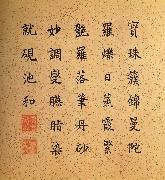 寶珠簇錦曼陀
羅爍日蒸霞紫
艷羅落筆丹砂
妙調燮臙脂染
就硯池和